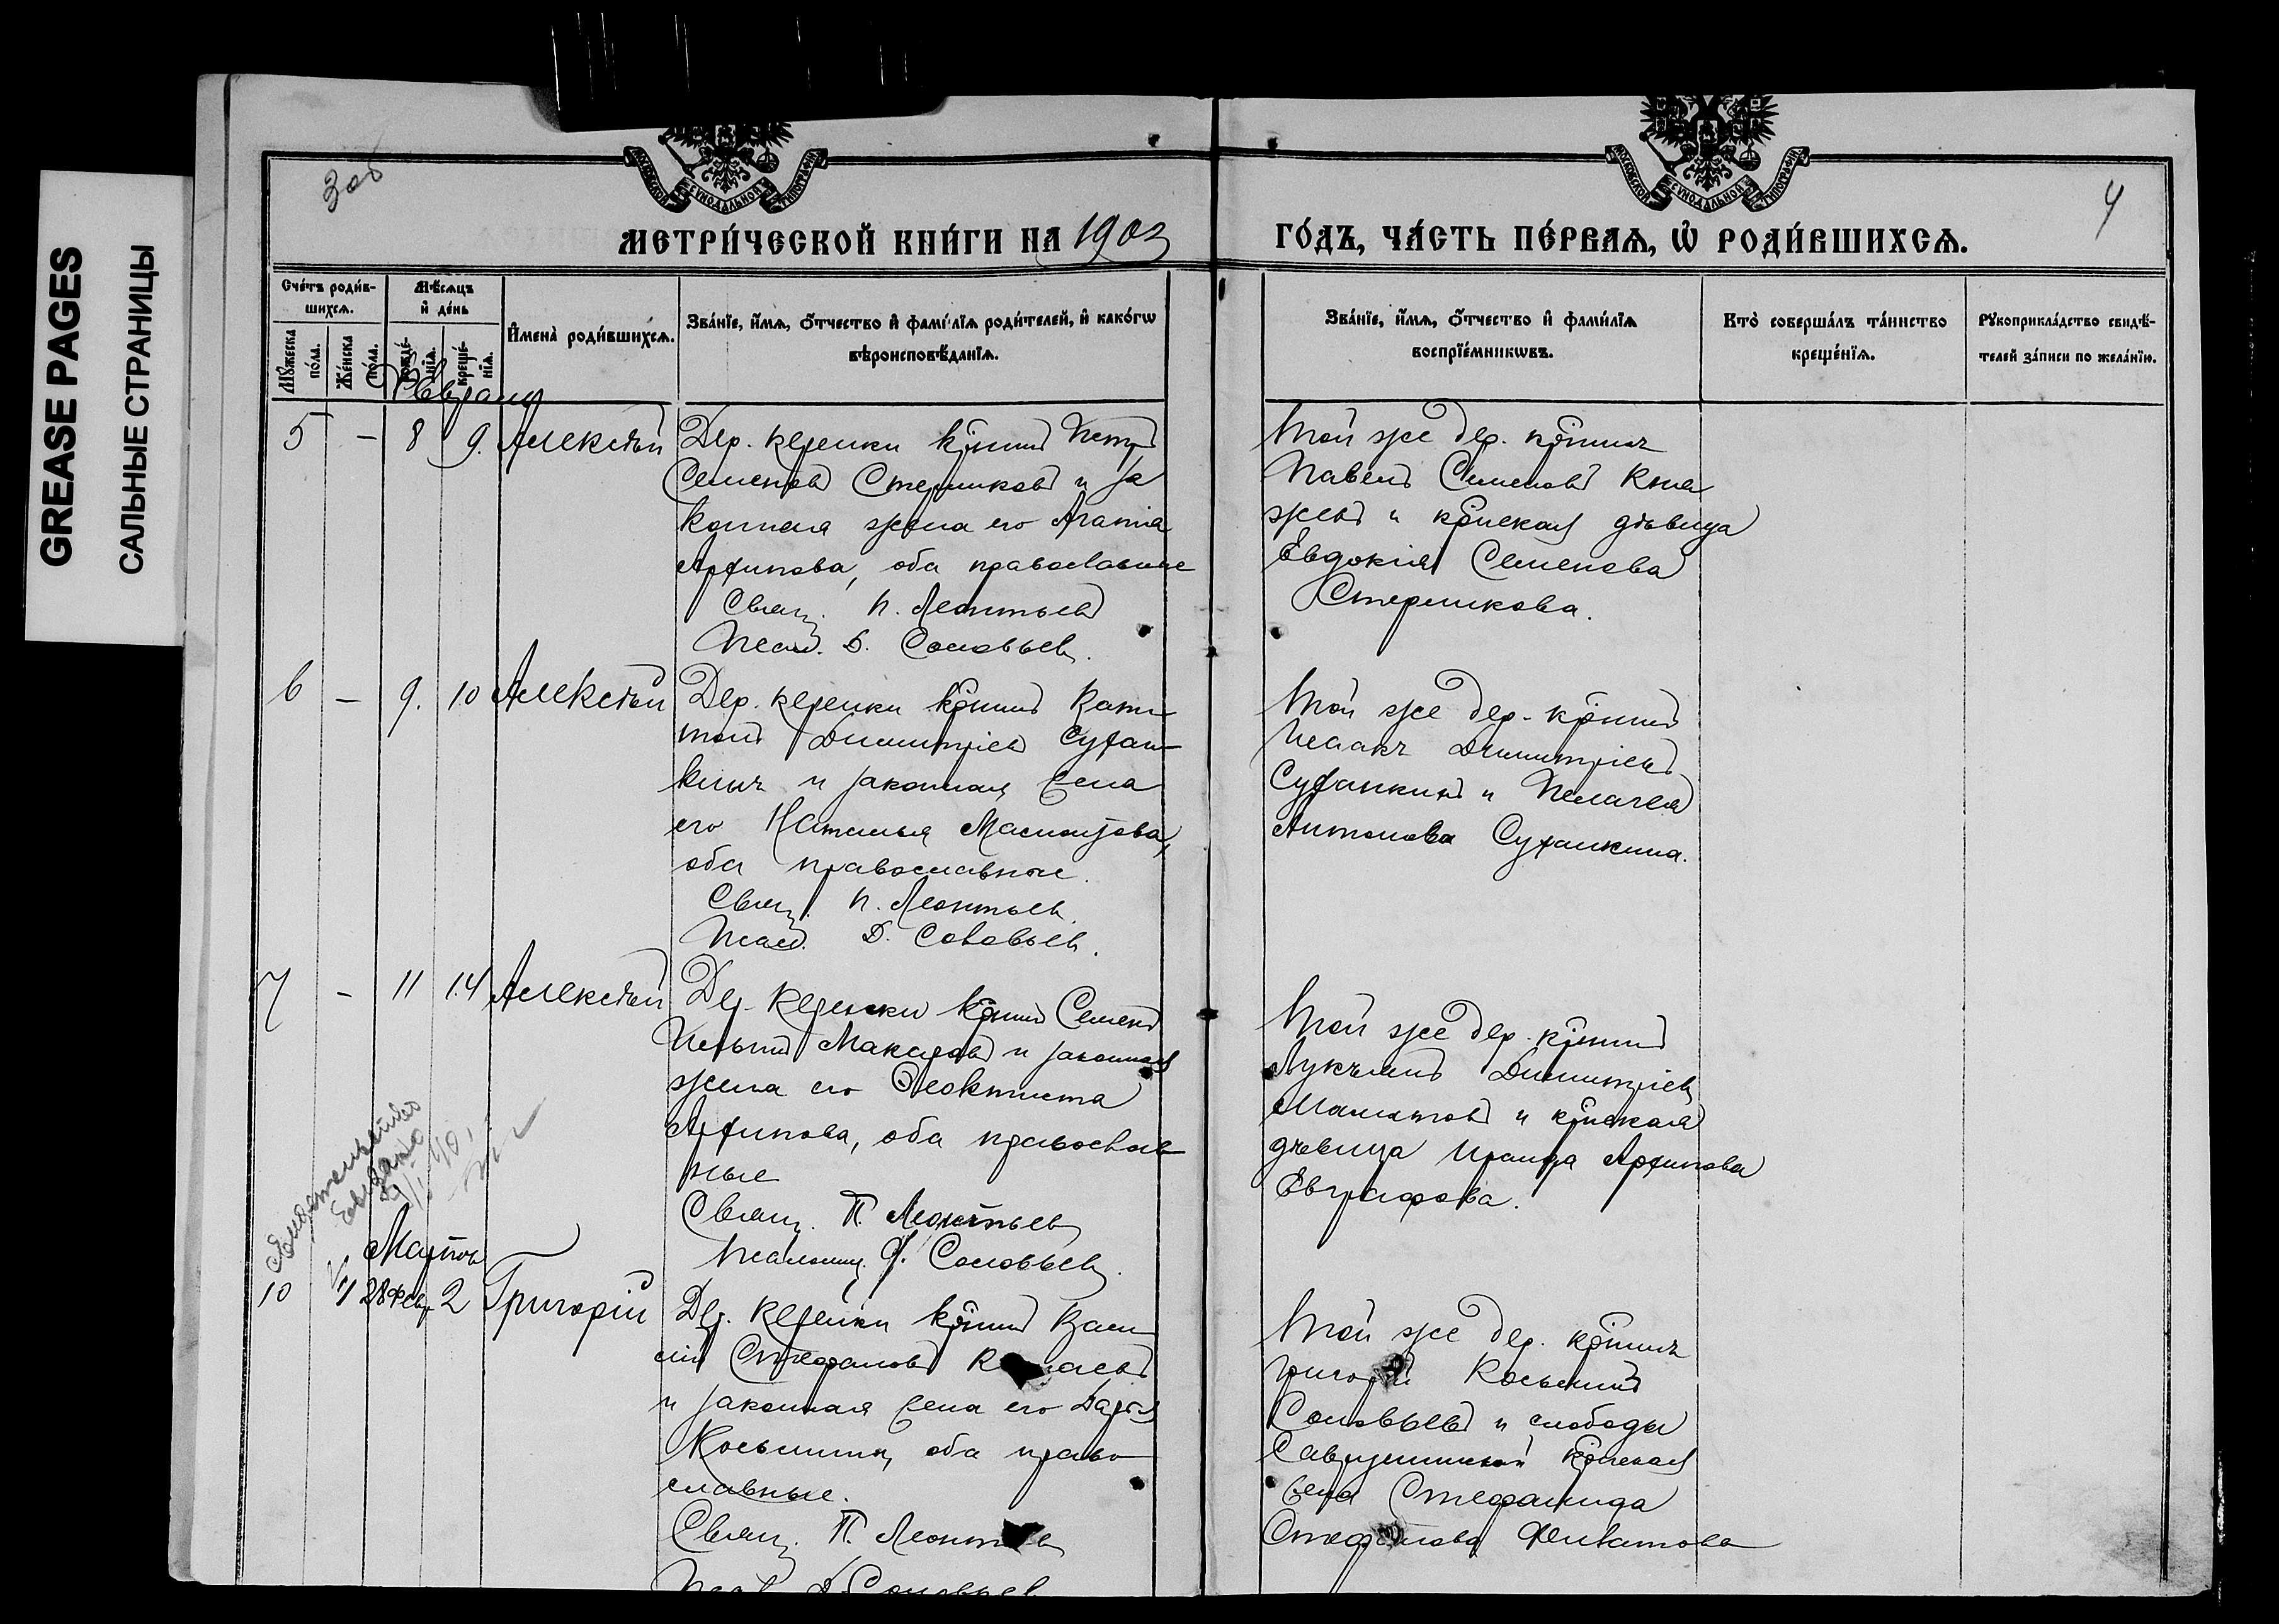 GREASE PAGES
САЛЬНЫЕ СТРАНИЦЫ
3об
4
МЕТРИ́ЧЕСКОЙ КНИ́ГИ НА 1903
ГО́ДЪ, ЧА́СТЬ ПЕ́РВАѦ, Ѡ҆ РОДИ́ВШИХСѦ.
Сче́тъ роди́вшихсѧ.
Мꙋ́жеска по́ла.
Же́нска по́ла.
Мѣ́сѧцъ и҆ де́нь
рожде́нїѧ.
креще́нїѧ.
И҆мена̀ роди́вшихсѧ.
Зва́нїе, и҆́мѧ, ѻ҆́тчество и҆ фами́лїѧ роди́телей, и҆ како́гѡ
вѣроисповѣ́данїѧ.
Зва́нїе, и҆́мѧ, ѻ҆́тчество и҆ фами́лїѧ
воспрїе́мникѡвъ.
Кто̀ соверша́лъ та́инство
креще́нїѧ.
Рꙋкоприкла́дство свидѣ́-
телей за́писи по жела́нїю.
Февраль
5 - 8 9. Алексѣй
Дер. Керенки кр̃нинъ Петръ
Семеновъ Стерликовъ и за
конная жена его Агапія
Архипова, оба православные
Свящ. П. Леонтьевъ
Псал. Д. Соловьевъ.
Той же дер. кр̃нинъ
Павелъ Семеновъ Кня
жевъ и кр̃нская дѣвица
Евдокія Семенова
Стерликова.
6 - 9. 10 Алексѣй
Дер. Керенки кр̃нинъ
Димитріевъ Сухан-
кинъ и законная жена
его Наталья
оба православные.
Свящ. П. Леонтьевъ.
Псал. Д. Соловьевъ.
Той же дер. кр̃нинъ
Исаакъ Димитріевъ
Суханкинъ и Пелагея
Антонова Суханкина.
7 - 11 14 Алексѣй
Дер. Керенки кр̃нинъ Семенъ
и законная
жена его Ѳеоктиста
Архипова, оба православ
ные
Свящ. П. Леонтьевъ
Псаломщ. Д. Соловьевъ.
Той же дер. кр̃нинъ
Лукьянъ Димитріевъ
и кр̃нская
дѣвица Ираида Архипова
Евграфова.
Мартъ
10 28 Февр. 2 Григорій
Дер. Керенки кр̃нинъ Васи
лій Стефановъ
и законная жена его Дарья
Косьмина, оба право
славные.
Свящ. П. Леонтьевъ
Псал. Д. Соловьевъ
Той же дер. кр̃нинъ
Григорій Косьминъ
Соловьевъ и слободы
кр̃нская
жена Стефанида
Стефанова Филатова